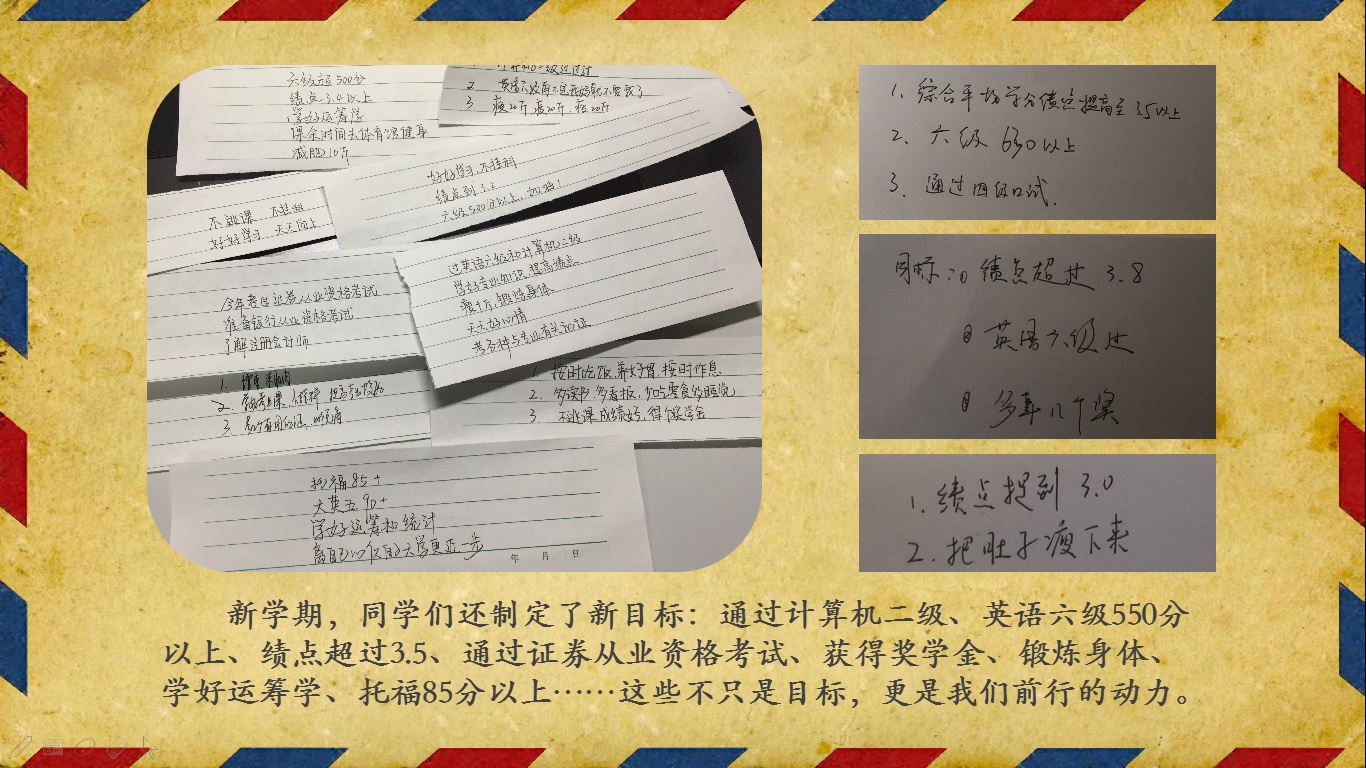 六级超500分
绩点3.4以上
学好运筹学
课余时间去体育馆健身
减肥10斤
2.
3. 瘦20斤 瘦20斤 瘦20斤
好好学习,不挂科
绩点到3.2
六级500分以上,加油!
不逃课 不挂科
好好学习 天天向上
过英语六级和计算机二级
学好专业知识,提高绩点
瘦十斤,锻炼身体
天天好心情
考各种与专业有关的证
今年考出证券从业资格考试
准备银行从业资格考试
了解注册会计师
1.
2.
3.
1. 按时吃饭,养好胃,按时作息
2. 多读书,多看报,少吃零食多睡觉
3. 不逃课,成绩好,得个奖学金
托福85+
大英五90+
学好运筹和统计
离自己心仪的大学更近一步
年 月 日
1. 综合平均学分绩点提高至3.5以上
2. 六级 630以上
3. 通过四级口试.
目标:① 绩点超过 3.8
② 英语六级过
③ 多拿几个奖
1. 绩点提到 3.0
2. 把肚子瘦下来
新学期,同学们还制定了新目标:通过计算机二级、英语六级550分
以上、绩点超过3.5、通过证券从业资格考试、获得奖学金、锻炼身体、
学好运筹学、托福85分以上……这些不只是目标,更是我们前行的动力。